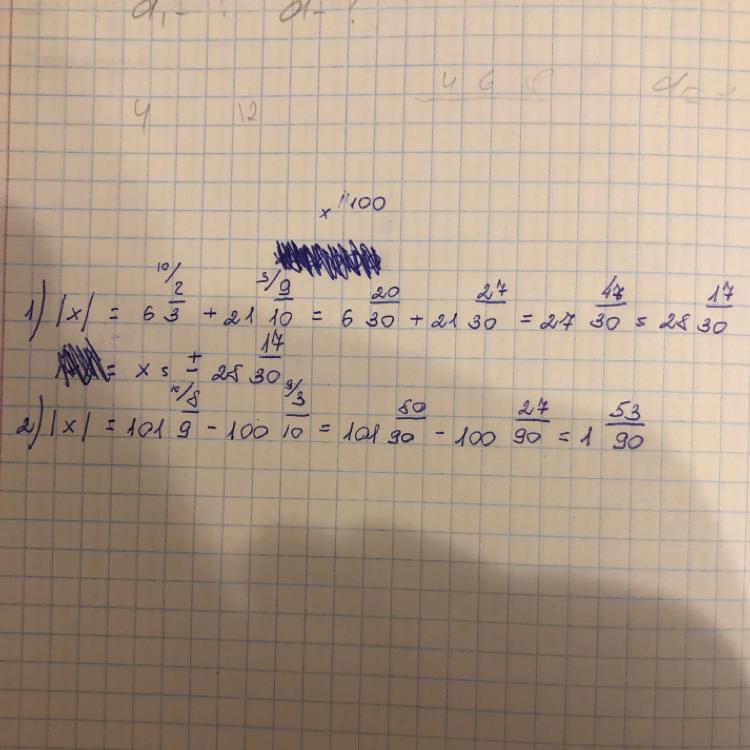 d₁ - ? d - ?
4 6 8
4 12
× 100
1) |x| = 6 2/3 + 21 9/10 = 6 20/30 + 21 27/30 = 27 47/30 = 28 17/30
= x = ± 28 17/30
2) |x| = 101 8/9 - 100 3/10 = 101 80/90 - 100 27/90 = 1 53/90